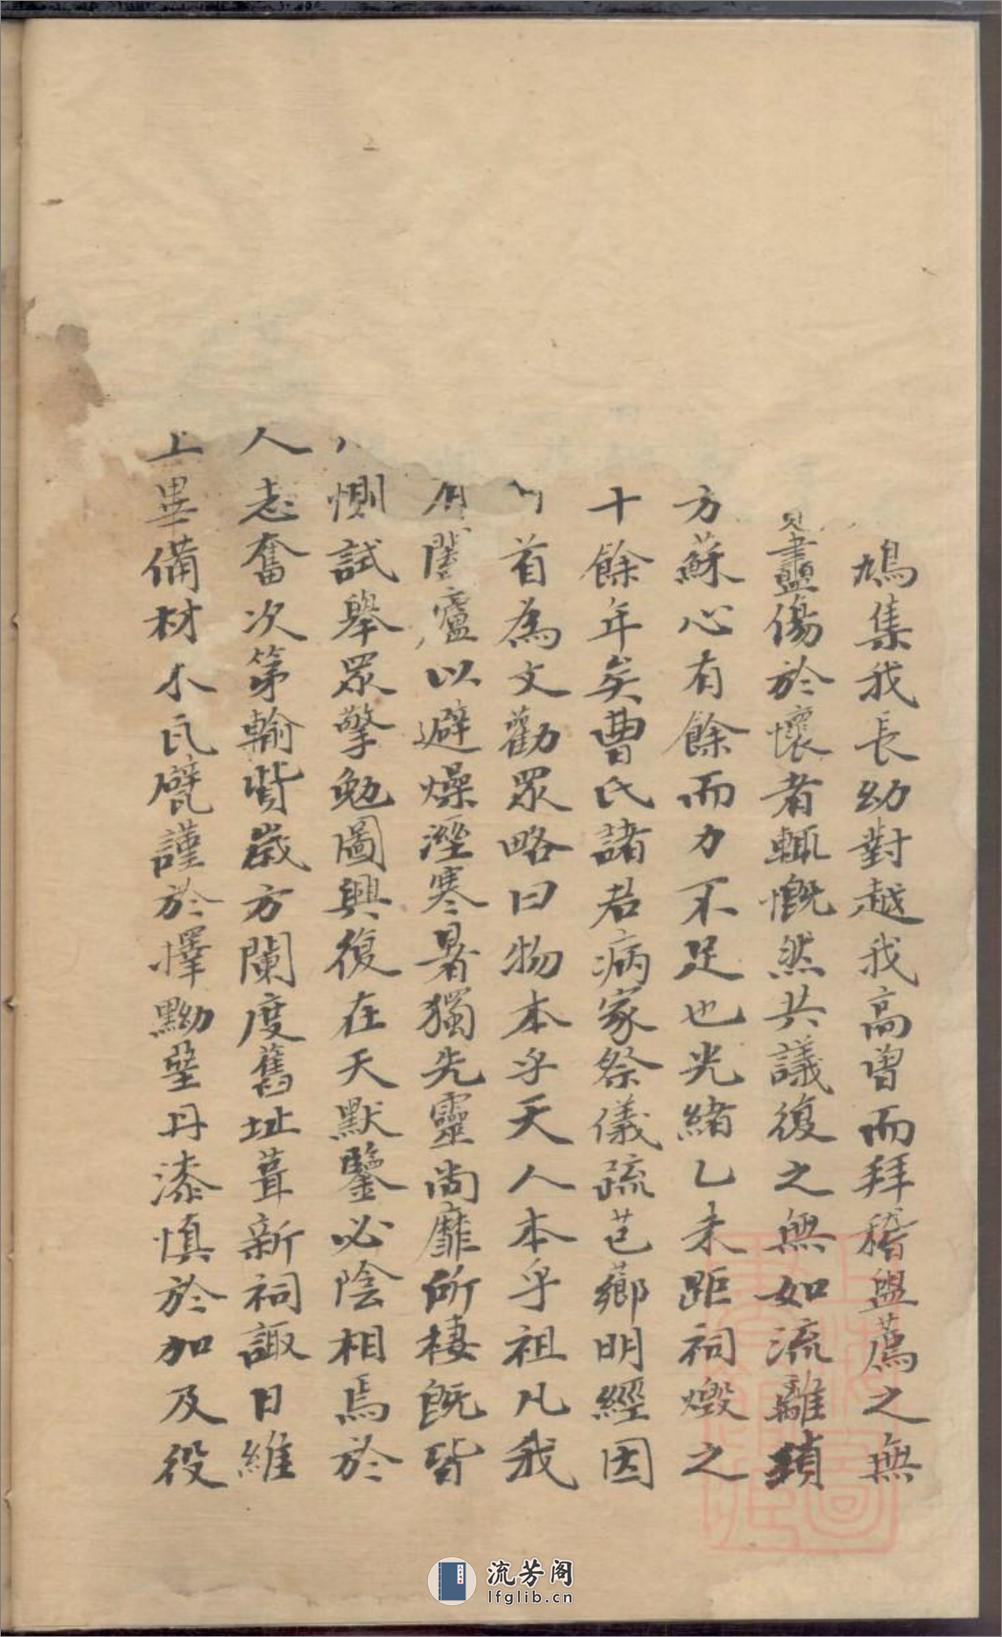 鳩集我長幼對越我高曾而拜稽盥薦之無
衋傷於懷者輒慨然共議復之無如流離瑣
方蘇心有餘而力不足也光緒乙未距祠燬之
十餘年矣曹氏諸君病家祭儀疏芑薌明經因
首為文勸眾略曰物本乎天人本乎祖凡我
閭廬以避燥溼寒暑獨先靈尚靡所棲既皆
惻試舉眾擎勉圖興復在天默鑒必陰相焉於
人志奮次第輸貲歲方闌度舊址葺新祠諏日維
上畢備材木瓦甓謹於擇黝堊丹漆慎於加及役
流芳阁
lfglib.cn